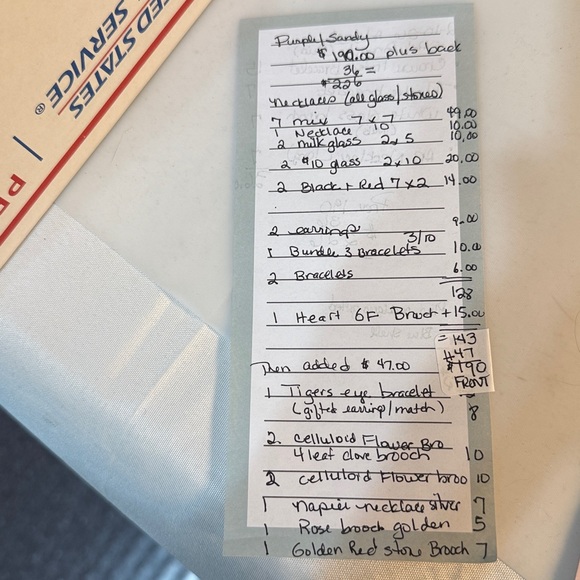 ED STATES
SERVICE ®
PR
Purple/Sandy
$190.00 plus back
36 =
$226
necklaces (all glass/stones)
7 mix 7x7 49.00
1 Necklace 10 10.00
2 milkglass 2x5 10,00
2 $10 glass 2x10 20.00
2 Black + Red 7x2 14.00
2 earrings 9.00
1 Bundle 3 Bracelets 3/10 10.00
2 Bracelets 6.00
128
1 Heart GF Brooch +15.00
= 143
+47
$190
FRONT
Then added $47.00
1 Tigers eye bracelet
(gifted earring/match) 8
2 celluloid Flower Bro
4 leaf clove brooch 10
2 celluloid Flower broo 10
1 napier necklace silver 7
1 Rose brooch golden 5
1 Golden Red stone Brooch 7